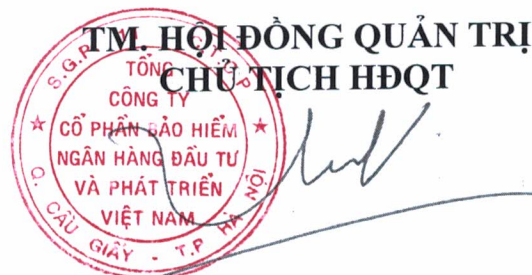 TM. HỘI ĐỒNG QUẢN TRỊ
CHỦ TỊCH HĐQT
TỔNG
CÔNG TY
CỔ PHẦN BẢO HIỂM
NGÂN HÀNG ĐẦU TƯ
VÀ PHÁT TRIỂN
VIỆT NAM
Q. CẦU GIẤY - T.P HÀ NỘI